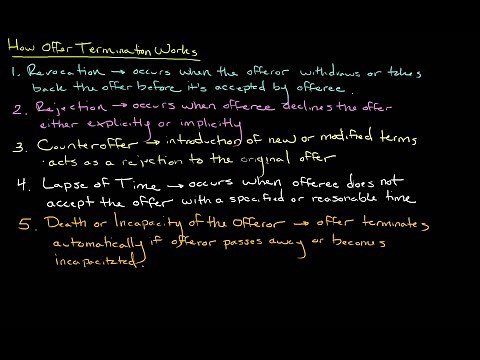 How Offer Termination Works
1. Revocation → occurs when the offeror withdraws or takes
back the offer before it's accepted by offeree.
2. Rejection → occurs when offeree declines the offer
either explicitly or implicitly
3. Counteroffer → introduction of new or modified terms
· acts as a rejection to the original offer
4. Lapse of Time → occurs when offeree does not
accept the offer with a specified or reasonable time
5. Death or Incapacity of the Offeror → offer terminates
automatically if offeror passes away or becomes
incapacitated.